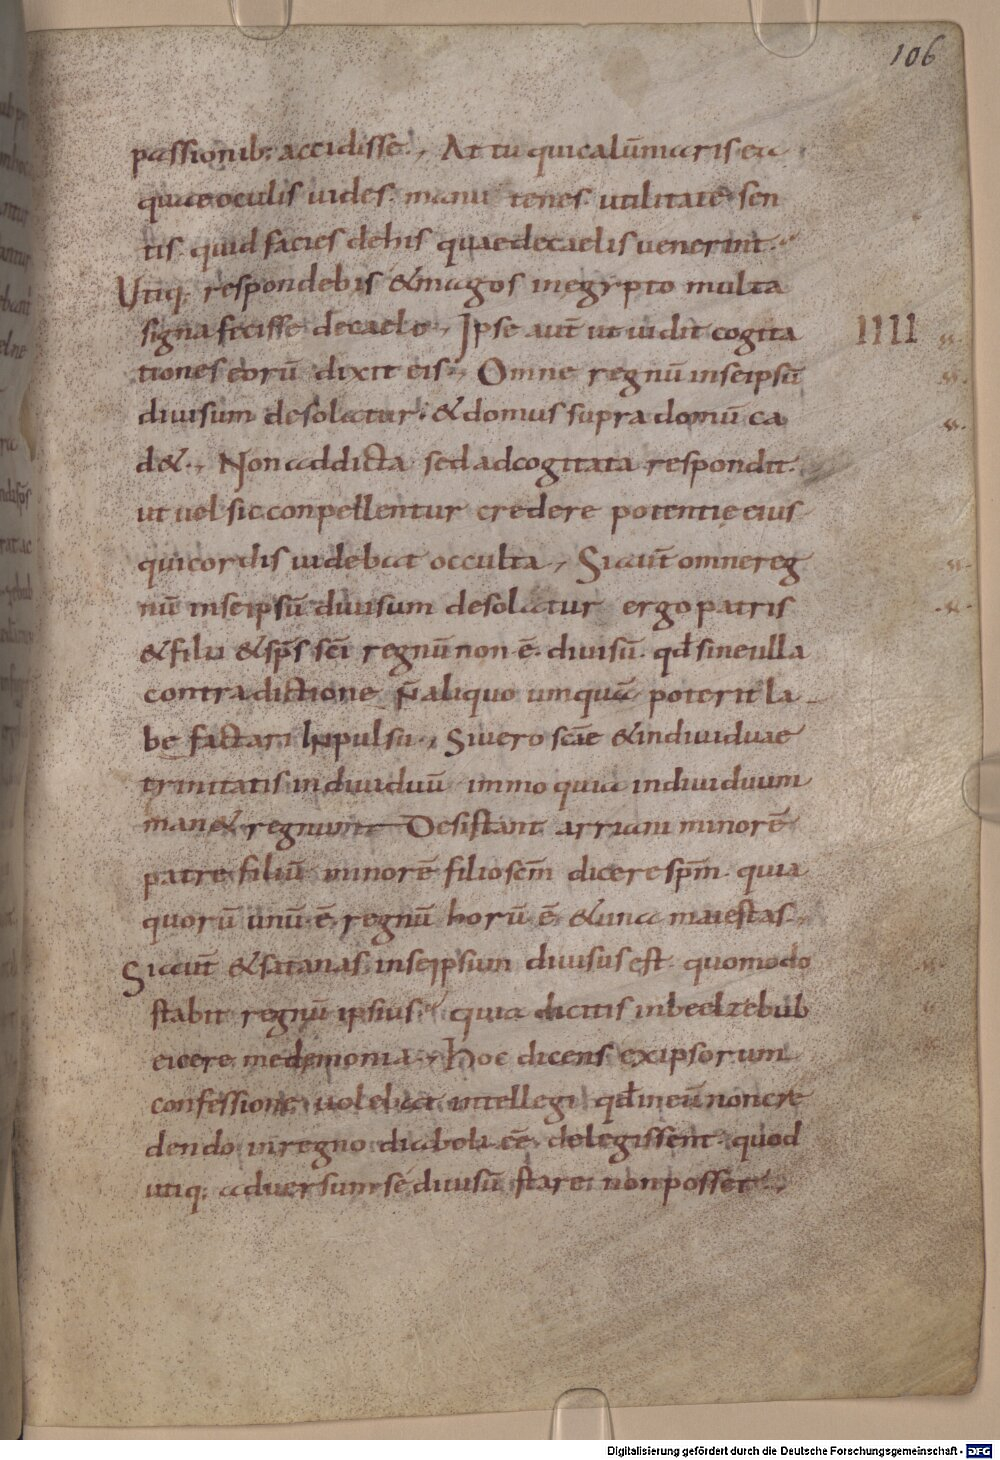 106
passionib; accidisse., At tu qui calūniaris ea
quae oculis uides. manu tenes. utilitate sen
tis. quid facies dehis quaedecaelis venerint.
Utiq; respondebis &magos inegypto multa
signa fecisse decaelo., Ipse aut̄ ut uidit cogita
IIII
tiones eorū dixit eis., Omne regnū inseipsū
diuisum desolatur. &domus supra domū ca
d&., Non addicta sed adcogitata respondit.
ut uel sic conpellentur credere potentię eius
qui cordis uidebat occulta., Sicut̄ omnereg
nū inseipsū diuisum desolatur ergo patris
&filii &sp̄s sc̄i regnū non ē. diuisū. qd̄ sineulla
contradictione n̄ aliquo umquā poterit la
be factari inpulsu., Si uero sc̄ae &indiuiduae
trinitatis indiuiduū immo quia indiuiduum
man& regnum Desistant arriani minorē
patre filiū minorē filio sc̄m dicere sp̄m. quia
quorū unū ē. regnū horū ē &una maiestas.,
Sicut̄ &satanas inseipsum diuisus est. quomodo
stabit regnū ipsius. quia dicitis inbeelzebub
eicere me demonia., Hoc dicens exipsorum
confessione uolebat intellegi qd̄ ineū noncre
dendo inregno diaboli eē. delegissent. quod
utiq; aduersum se diuisū stare non posset.,
Digitalisierung gefördert durch die Deutsche Forschungsgemeinschaft - DFG